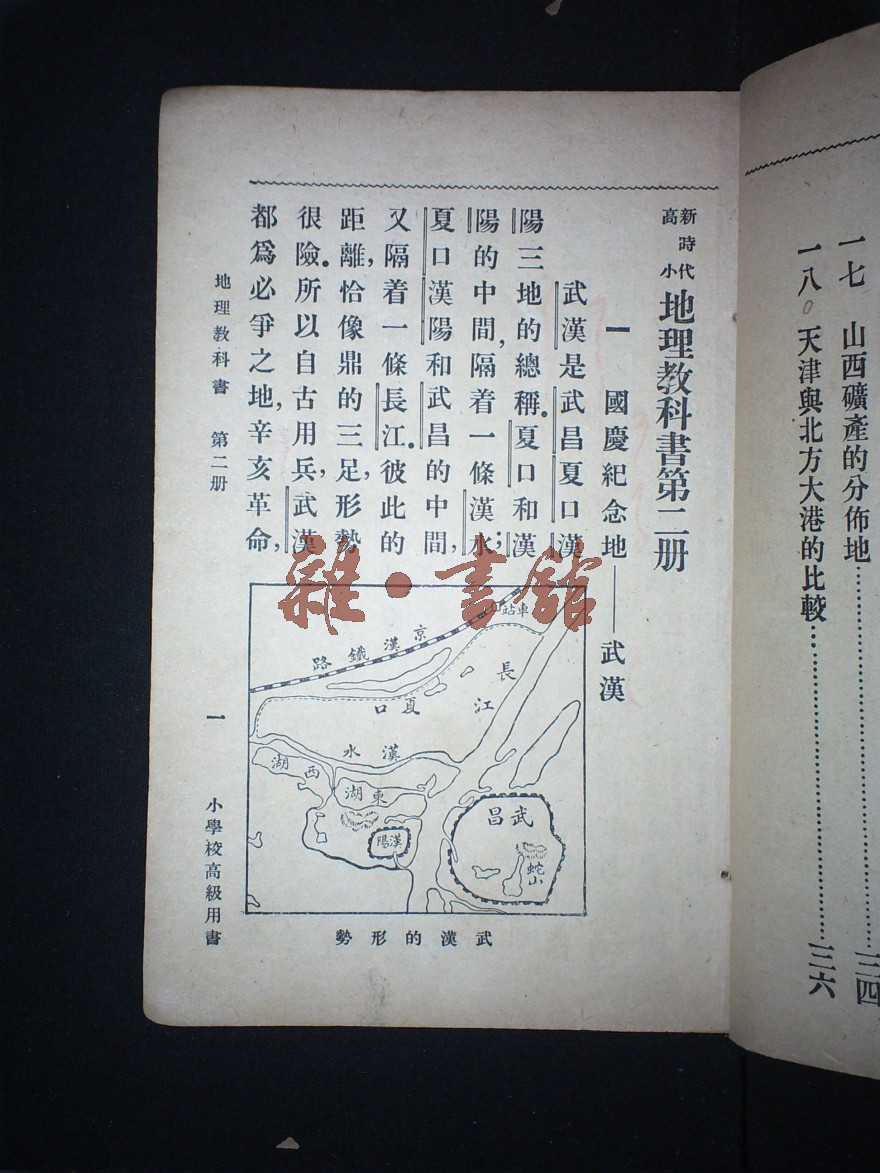 一七 山西礦產的分佈地……三四
一八 天津與北方大港的比較……三六
新時代
高小
地理教科書第二册
一 國慶紀念地——武漢
武漢是武昌夏口漢
陽三地的總稱。夏口和漢
陽的中間,隔着一條漢水;
夏口漢陽和武昌的中間,
又隔着一條長江。彼此的
距離,恰像鼎的三足,形勢
很險。所以自古用兵,武漢
都爲必爭之地,辛亥革命,
車站
京漢鐵路
長江
夏口
漢水
西湖
東湖
漢陽
武昌
蛇山
武漢的形勢
地理教科書 第二册
一
小學校高級用書
雜·書館